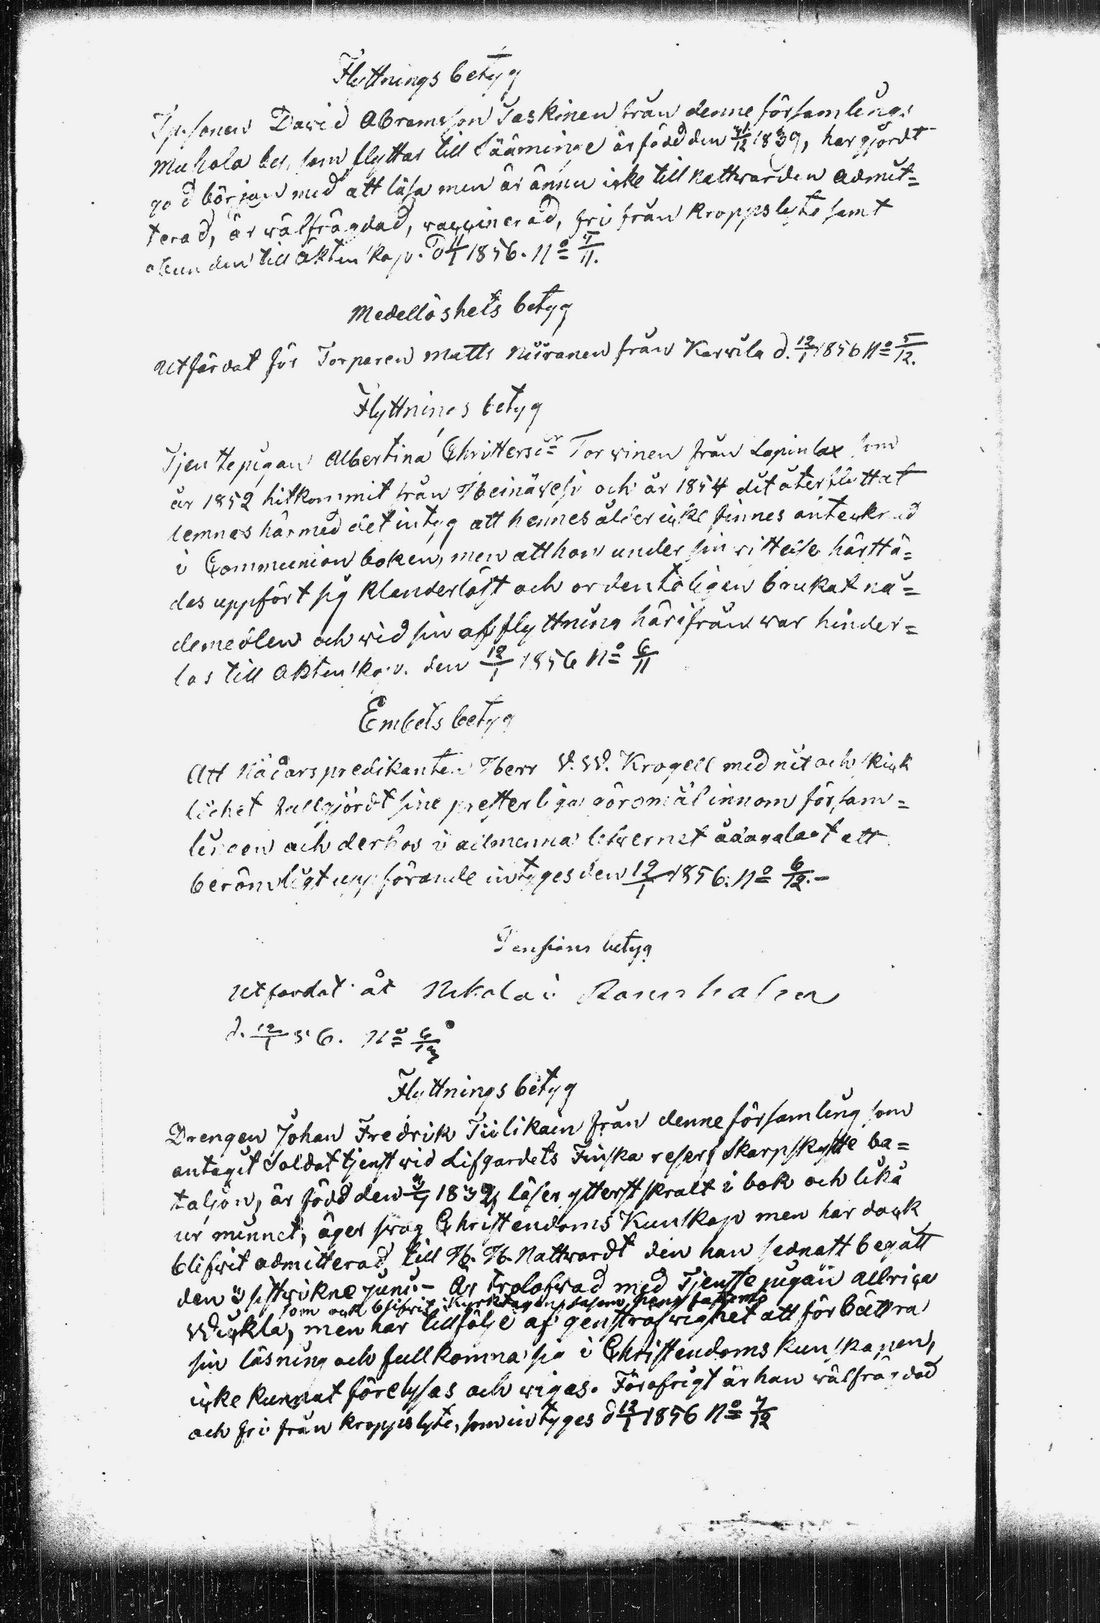 Flyttnings betyg
Ynsonen David Abramsson Taskinen från denne församlings
Muhola by, som flyttar till Sääminge är född den 31/12 1839, har gjordt
god början med att läsa men är ännu icke till nattwarden admit=
terad, är wälfrägdad, waccinerad, fri från kroppslyte samt
obunden till äktenskap. D 4/1 1856. No 5/11.
Medellöshets betyg
Utfärdat för Torparen Matts Niiranen från Karwila d. 12/1 1856 No 5/12.
Flyttnings betyg
Tjenstepigan Albertina Christersdr Torwinen från Lapinlax som
år 1852 hitkommit från Heinäwesi och år 1854 dit återflyttat
lemnas härmed det intyg att hennes ålder icke finnes antecknad
i Communion boken, men att hon under sin wistelse härstä=
des uppfört sig klanderlöst och ordenteligen brukat nå=
demedlen och wid sin afflyttning härifrån war hinder=
lös till äktenskap. den 12/1 1856 No 6/11
Embets betyg
Att Nådårspredikanten Herr V. W. Krogell med nit och skick
lighet fullgjordt sine presterliga göromål innom försam=
lingen och derhos i allmenna lefwernet ådagalagt ett
berömligt uppförande intyges den 12/1 1856. No 6/12.-
Pensions betyg
Utfärdat åt Nikolai
d. 12/1 56. No 6/13
Flyttnings betyg
Drengen Johan Fredrik Tiilikain från denne församling som
antagit Soldattjenst wid Lifgardets Finska reserf Skarpskytte ba=
taljon, är född den 1839, läser ytterst skralt i bok och lika
ur minnet, äger swag Christendoms Kunskap men har dock
blifwit admitterad till H. H. Nattwardt den han sednast begått
den sistwikne Juni.- Är trolofwad med Tjenstepigan Albriga
som ock blifwit
Wickla, men har tillfölje af genstrafwighet att förbättra
sin läsning och fullkomna sig i Christendoms kunskapen,
icke kunnat förelysas och wigas. Föröfrigt är han wälfrägdad
och fri från kroppslyte, som intyges d 12/1 1856 No 7/12